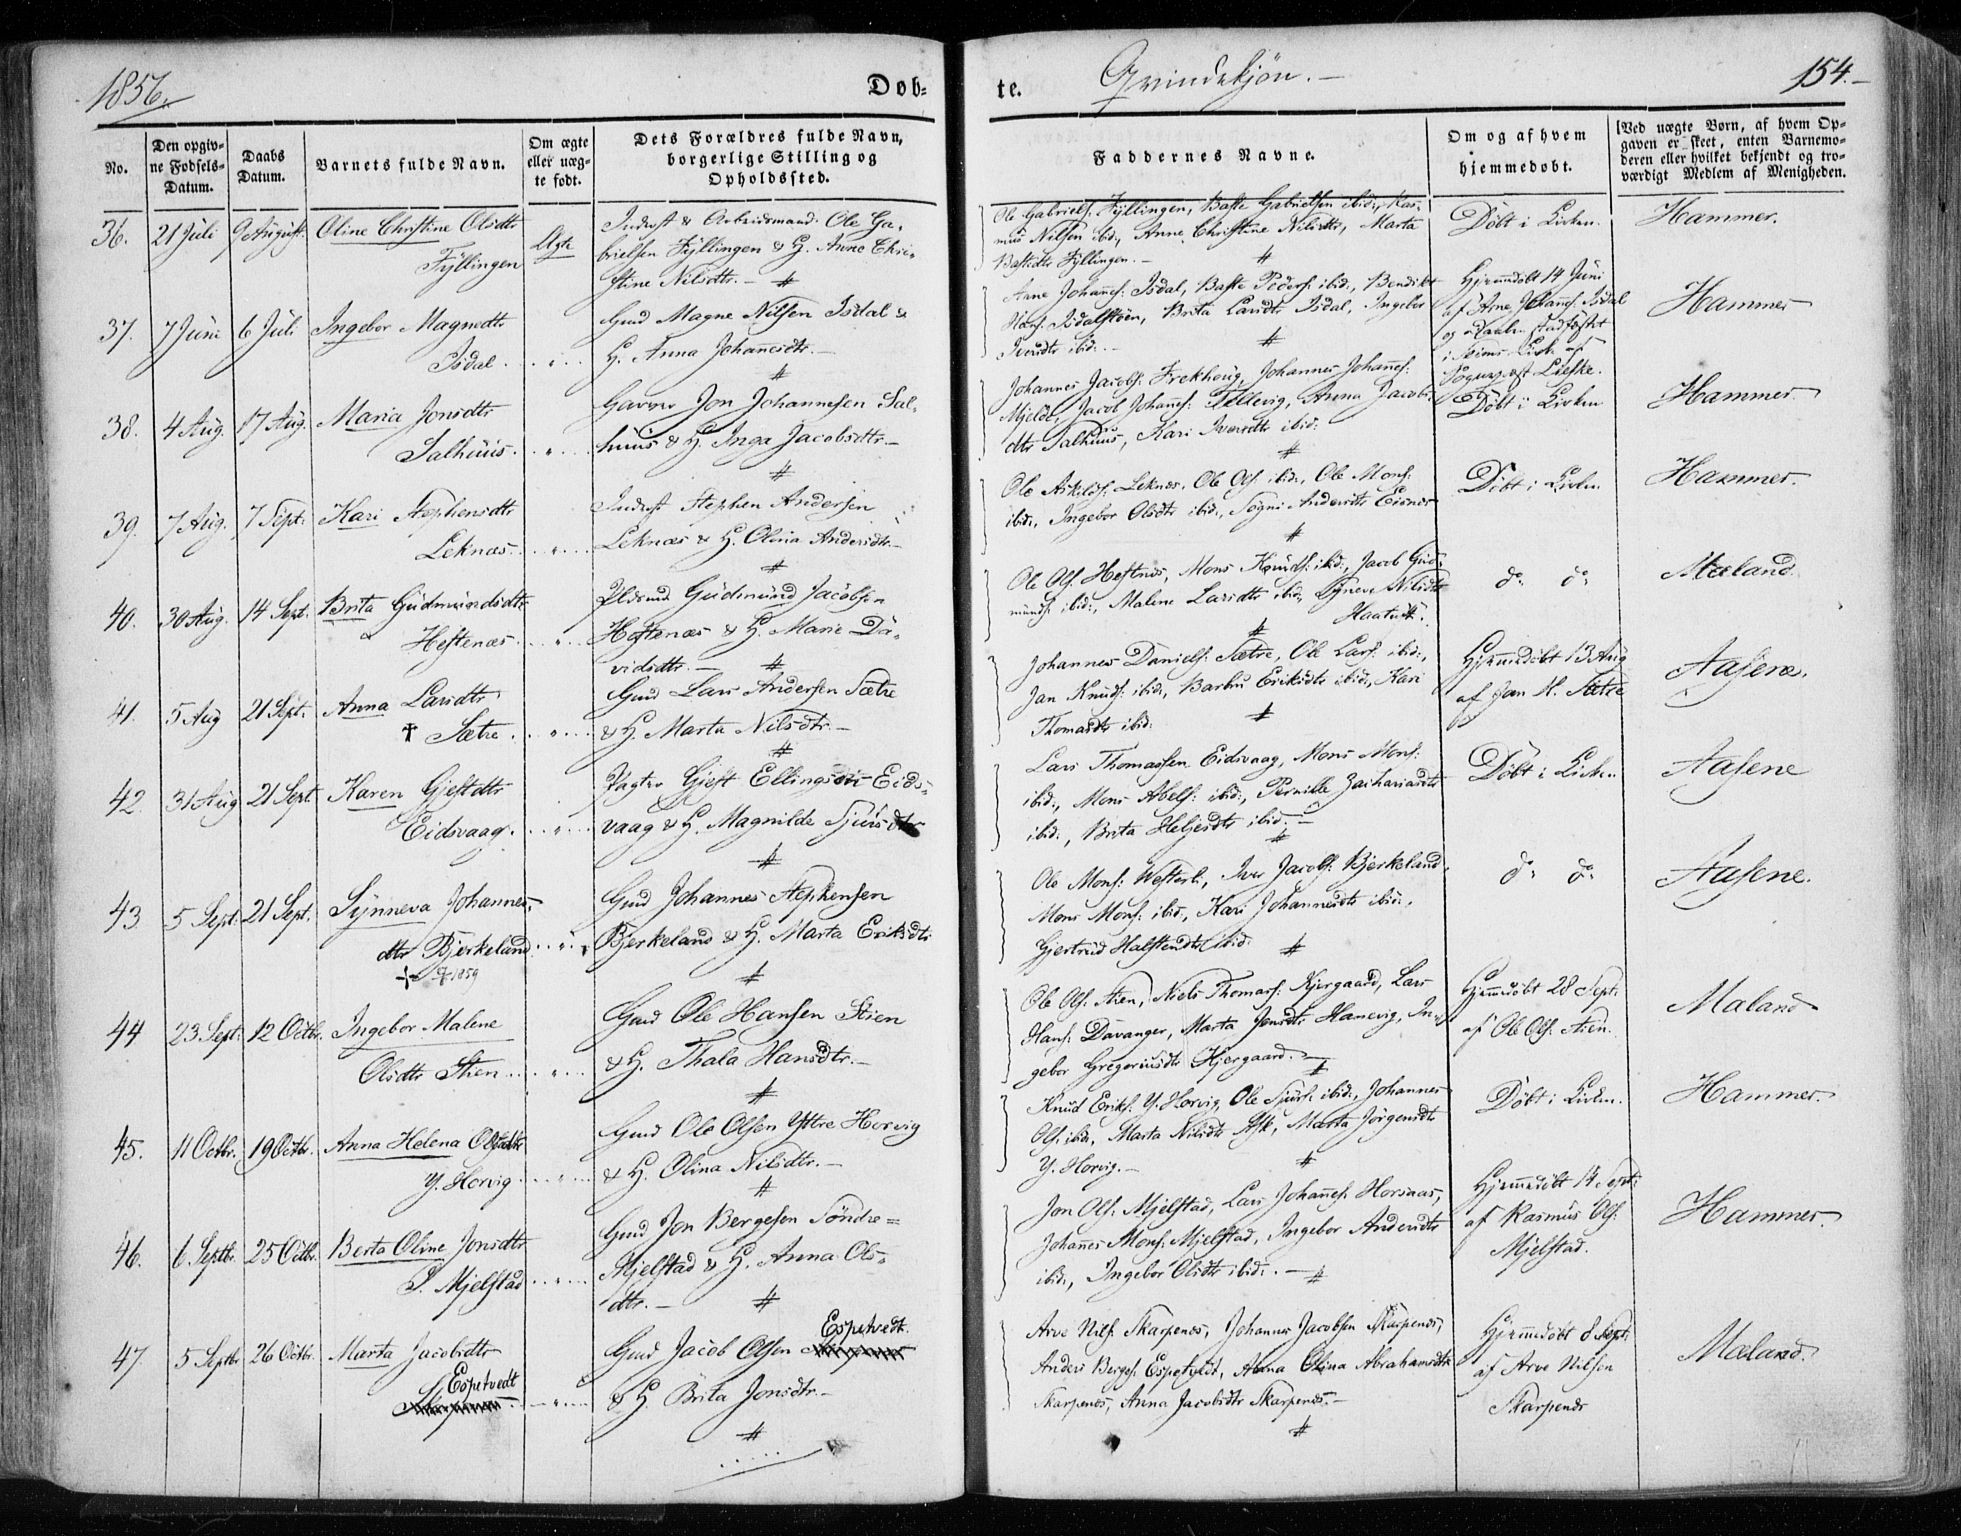 1856.
Døb-
te.
Qvindekjøn.
154.
No.
Den opgiv-
ne Fødsels-
Datum.
Daabs
Datum.
Barnets fulde Navn.
Om ægte
eller uæg-
te født.
Dets Forældres fulde Navn,
borgerlige Stilling og
Opholdssted.
Faddernes Navne.
Om og af hvem
hjemmedøbt.
Ved uægte Børn, af hvem Op-
gaven er skeet, enten Barnemo-
deren eller hvilket bekjendt og tro-
værdigt Medlem af Menigheden.
36. 21 Juli 9 August. Oline Christine Olsdtr
Fyllingen
Ægte
Inderst & Arbeidsmand Ole Ga-
brielsen Fyllingen & H. Anne Chri-
stine Nilsdtr.
Ole Gabriels. Fyllingen, Baste Gabrielsen ibid:, Ras-
mus Nilsen ibid:, Anne Christine Nilsdtr, Marta
Bastedtr Fyllingen.
Døbt i Kirken.
Hammer.
37. 7 Juni 6 Juli Ingebor Magnedtr
Isdal.
Gmd Magne Nilsen Isdal &
H. Anna Johannesdtr.
Arne Johannes: Isdal, Baste Peders: ibid:, Bendikt
Hans: Isdalstøen, Brita Larsdtr Isdal, Ingebor
Iversdtr ibid:
Hjemmedøbt 14 Juni
af Arne Johannes: Isdal
og Daaben stadfæstet
i Kirke af
Sognepræst
Hammer
38. 4 Aug. 17 Aug. Maria Jonsdtr
Salhuus.
Garver Jon Johannesen Sal-
huus & H. Inga Jacobsdtr.
Johannes Jacobs: Frekhoug, Johannes Johannes:
Mjelde, Jacob Johannes: Tellevig, Anna Jacobs-
dtr Salhuus, Kari Iversdtr ibid:
Døbt i Kirken
Hammer.
39. 7 Aug. 7 Sept. Kari Stephensdtr
Leknæs.
Inderst Stephen Andersen
Leknæs & H. Olina Andersdtr.
Ole Askilds: Leknæs, Ole Ols: ibid:, Ole Mons:
ibid:, Ingebor Olsdtr ibid:, Sogni Andersdtr Eisnes
Døbt i Kirken.
Hammer.
40. 30 Aug. 14 Sept. Brita Gudmundsdtr
Hestenæs.
Pldsmd Gudmund Jacobsen
Hestenæs & H. Marie Da-
vidsdtr.
Ole Ols: Hestnes, Mons Knuds: ibid:, Jacob Gud-
munds: ibid:, Malene Larsdtr ibid:, Synneve Nilsdtr
Haatuft.
do do
Mæland.
41. 5 Aug 21 Sept. Anna Larsdtr
† Sætre.
Gmd Lars Andersen Sætre
& H. Marta Nilsdtr.
Johannes Daniels: Sætre, Ole Lars: ibid:,
Jan Knuds: ibid:, Barbru Eriksdtr ibid:, Kari
Thomasdtr ibid:
Hjemmedøbt 13 Aug
af Jan K. Sætre
Aasene.
42. 31 Aug 21 Sept Karen Gjestdtr
Eidsvaag.
Pagter Gjest Ellingsen Eids-
vaag & H. Magnilde Sjursdtr
Lars Thomassen Eidsvaag, Mons Mons:
ibid:, Mons Abels: ibid:, Pernille Zachariasdtr
ibid:, Brita Helgesdtr ibid:
Døbt i Kirken
Aasene
43. 5 Sept. 21 Sept. Synneva Johannes-
dtr Bjerkeland
† 1859
Gmd Johannes Stephensen
Bjerkeland & H. Marta Eriksdtr
Ole Mons: Westerl:, Iver Jacobs: Bjerkeland,
Mons Mons: ibid:, Kari Johannesdtr ibid:,
Gjertrud Halstendtr ibid:
do do
Aasene.
44 23 Sept. 12 Octbr. Ingebor Malene
Olsdtr Stien
Gmd Ole Hansen Stien
& H. Thala Hansdtr.
Ole Ols: Stien, Niels Thomas: Kjergaard, Lars
Hans: Davanger, Marta Jonsdtr Hanevig, In-
gebor Gregoriusdtr Kjergaard.
Hjemmedøbt 28 Sept.
af Ole Ols: Stien.
Mæland
45. 11 Octbr. 19 Octbr. Anna Helena Olsdtr
Y. Horvig
Gmd Ole Olsen Yttre Horvig
& H. Olina Nilsdtr.
Knud Eriks: Y. Horvig, Ole Sjurs: ibid:, Johannes
Ols: ibid:, Marta Nilsdtr Ask, Marta Jørgensdtr
Y. Horvig.
Døbt i Kirken.
Hammer.
46. 6 Septbr. 25 Octbr. Berta Oline Jonsdtr
S. Mjelstad
Gmd Jon Bergesen Søndre-
Mjelstad & H. Anna Ols-
dtr.
Jon Ols: Mjelstad, Lars Johannes: Horsnæs,
Johannes Mons: Mjelstad, Ingebor Andersdtr
ibid:, Ingebor Olsdtr ibid:.
Hjemmedøbt 14 Sept:
af Rasmus Ols:
Mjelstad.
Hammer.
47. 5 Septbr 26 Octbr. Marta Jacobsdtr
Espetvedt
Gmd Jacob Olsen Espetvedt.
& H Brita Jonsdtr.
Arve Nils: Skarpenes, Johannes Jacobsen Skarpenes,
Anders Berges: Espetvedt, Anna Olina Abrahamsdtr
Skarpenes, Anna Jacobsdtr Skarpenes.
Hjemmedøbt 8 Sept.
af Arve Nilsen
Skarpenes
Mæland.